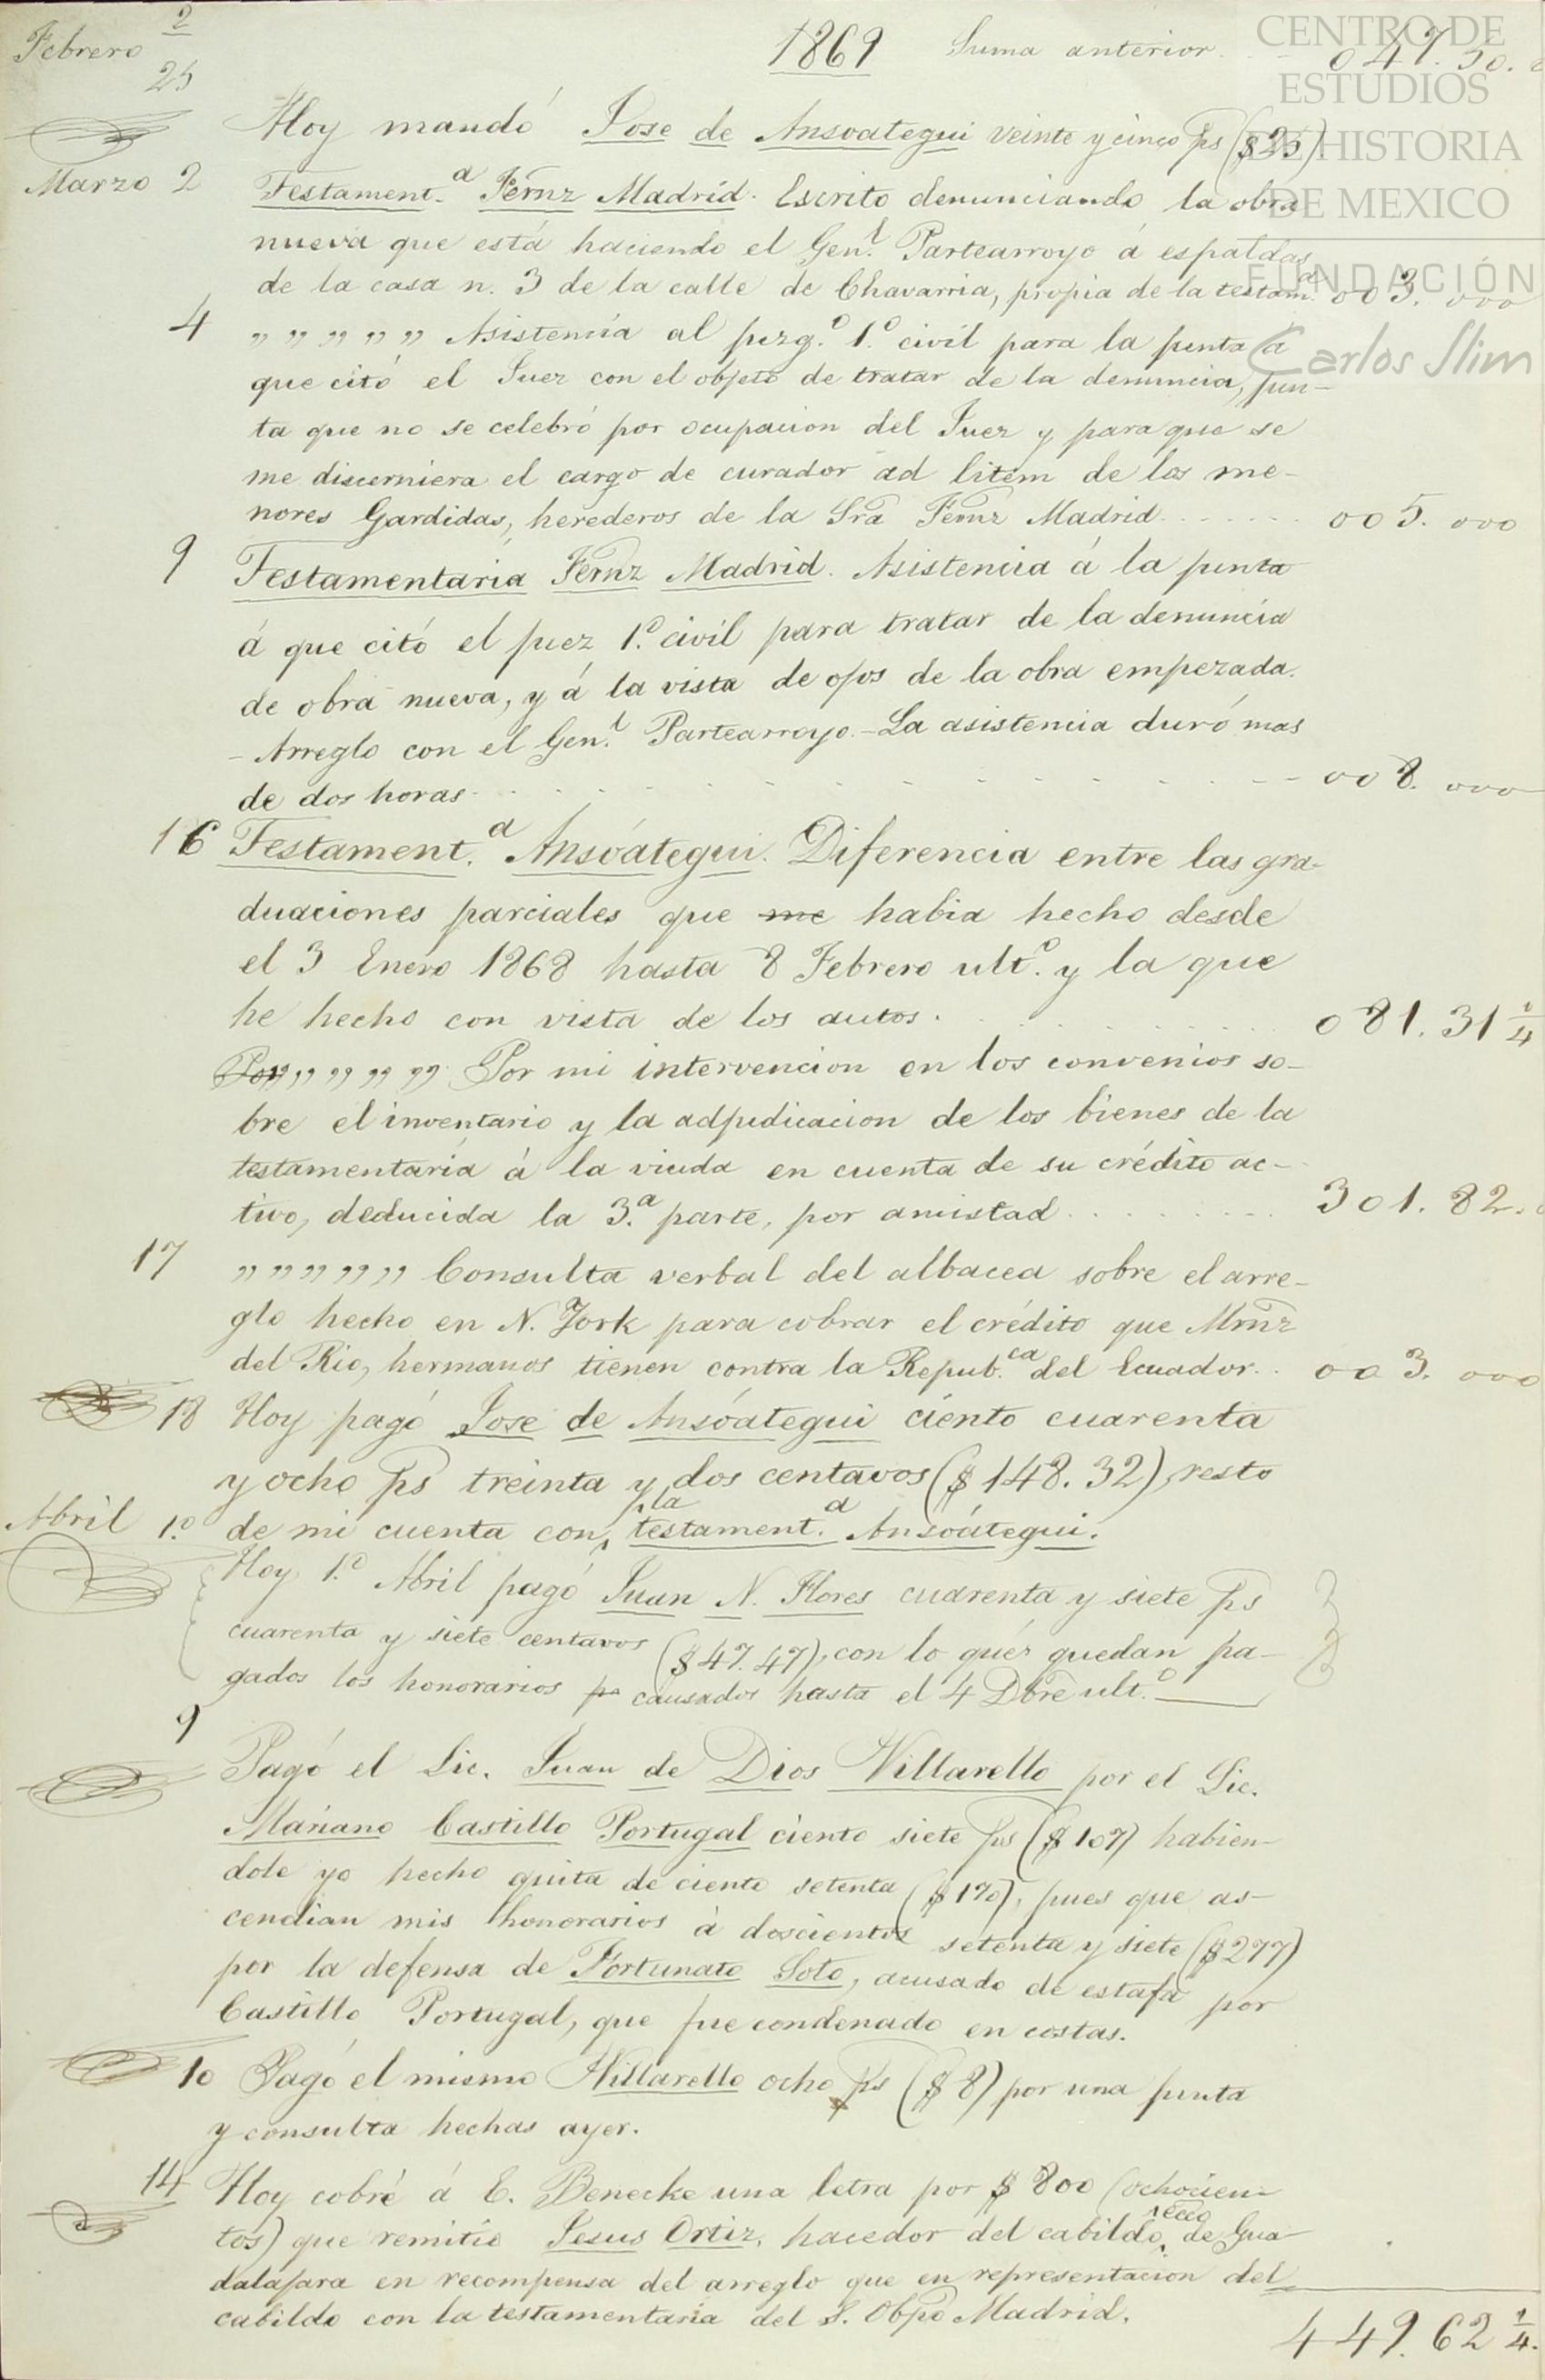 Febrero 2 1869 Suma anterior. 047.50.
25
Hoy mandó Jose de Ansoategui veinte y cinco ps ($25)
Marzo 2 Testament.ª Fernz Madrid. Escrito denunciando la obra
nueva que está haciendo el Gen.l Partearroyo á espaldas
de la casa n. 3 de la calle de Chavarria, propia de la testam.ª 003. 000
4 „ „ „ „ „ Asistencia al juzg.º 1.º civil para la junta á
que citó el Juez con el objeto de tratar de la denuncia, jun-
ta que no se celebró por ocupacion del Juez y para que se
me discerniera el cargo de curador ad litem de los me-
nores Gardidas, herederos de la Sra Fernz Madrid. . . . . . 005. 000
9 Testamentaria Fernz Madrid. Asistencia á la junta
á que citó el juez 1.º civil para tratar de la denuncia
de obra nueva, y á la vista de ojos de la obra empezada.
- Arreglo con el Gen.l Partearroyo. - La asistencia duró mas
de dos horas. . . . . . . 008. 000
16 Testament.ª Ansoátegui. Diferencia entre las gra-
duaciones parciales que me habia hecho desde
el 3 Enero 1868 hasta 8 Febrero ult.º y la que
he hecho con vista de los autos. . . . . . 081. 31 1/4
Por „ „ „ „ „ Por mi intervencion en los convenios so-
bre el inventario y la adjudicacion de los bienes de la
testamentaria á la viuda en cuenta de su crédito ac-
tivo, deducida la 3.ª parte, por amistad . . . . . . . . 301. 82.
17 „ „ „ „ „ „ Consulta verbal del albacea sobre el arre-
glo hecho en N. York para cobrar el crédito que Mrnz
del Rio, hermanos tienen contra la Repub.ca del Ecuador. . 003. 000
18 Hoy pagó Jose de Ansóategui ciento cuarenta
y ocho ps treinta y dos centavos ($148.32), resto
de mi cuenta con la testament.ª Ansoátegui.
Abril 1.º
Hoy 1.º Abril pagó Juan N. Flores cuarenta y siete ps
cuarenta y siete centavos ($47.47), con lo que quedan pa-
gados los honorarios pa causados hasta el 4 Dbre ult.º
9
Pagó el Lic. Juan de Dios Villarello por el Lic.
Mariano Castillo Portugal ciento siete ps ($107) habien-
dole yo hecho quita de ciento setenta ($170), pues que as-
cendian mis honorarios á doscientos setenta y siete ($277)
por la defensa de Fortunato Soto, acusado de estafa por
Castillo Portugal, que fue condenado en costas.
10 Pagó el mismo Villarello ocho ps ($8) por una junta
y consulta hechas ayer.
14 Hoy cobré á E. Benecke una letra por $800 (ochocien-
tos) que remitió Jesus Ortiz, hacedor del cabildo ecco de Gua-
dalajara en recompensa del arreglo que en representacion del
cabildo con la testamentaria del S. Obpo Madrid.
449. 62 1/4.
CENTRO DE
ESTUDIOS
DE HISTORIA
DE MEXICO
FUNDACIÓN
Carlos Slim